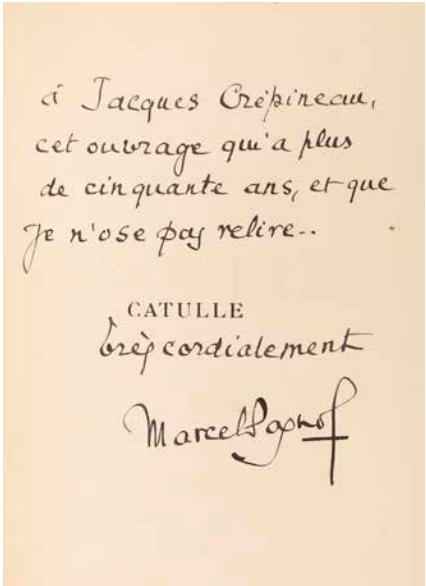 à Jacques Crépineau,
cet ouvrage qu'a plus
de cinquante ans, et que
Je n'ose pas relire..
CATULLE
très cordialement
Marcel Pagnol